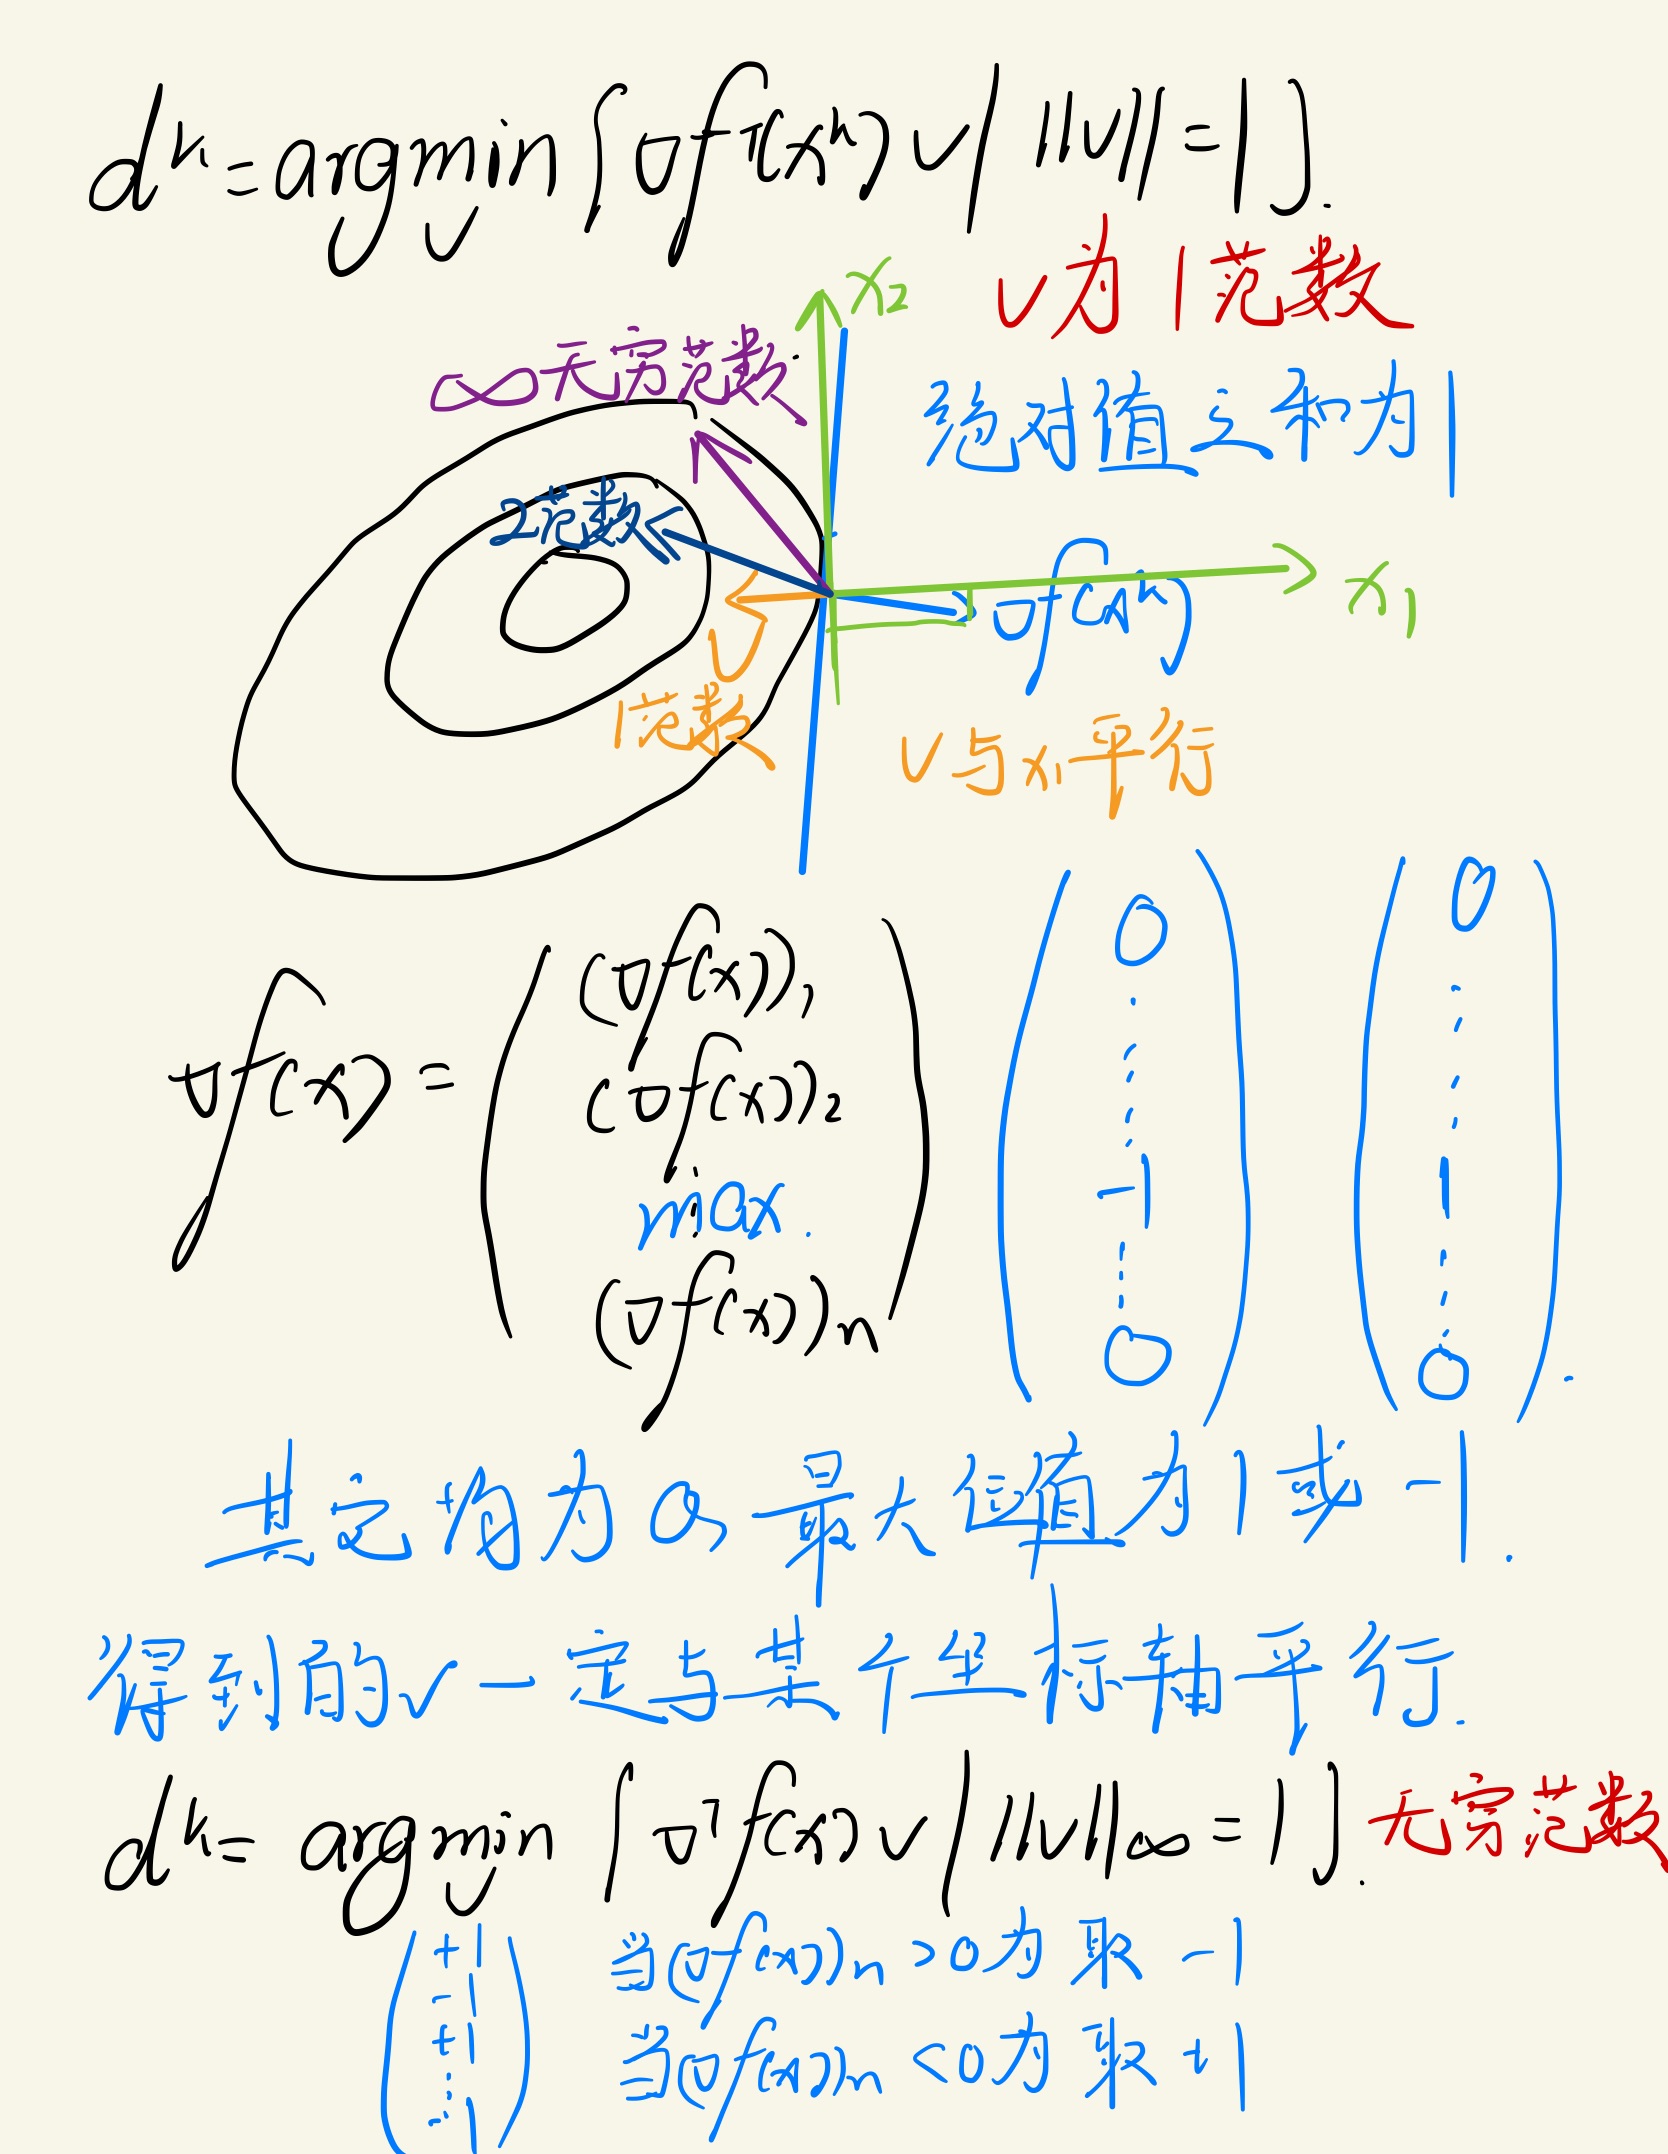 d^k = argmin_v {∇f^T(x^k) v | ||v|| = 1}.
x2
v为1范数
∞无穷范数
绝对值之和为1
2范数
∇f(x^k)
x1
v
1范数
v与x1平行
∇f(x) = ( (∇f(x))1 (∇f(x))2 max. (∇f(x))n ) ( 0 ⋮ -1 ⋮ 0 ) ( 0 ⋮ 1 ⋮ 0 ).
其它均为0, 最大位值为1或-1.
得到的v一定与某个坐标轴平行.
d^k = argmin_v {∇^T f(x) v | ||v||∞ = 1}. 无穷范数
( +1 -1 +1 ⋮ -1 )
当(∇f(x))n >0为 取 -1
当(∇f(x))n <0为 取 +1